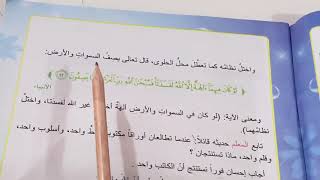 واختلّ نظامُه كما تعطّل محلّ الحلوى، قال تعالى يصفُ السمواتِ والأرضَ:
لَوْ كَانَ فِيهِمَا آلِهَةٌ إِلَّا اللَّهُ لَفَسَدَتَا فَسُبْحَانَ اللَّهِ رَبِّ الْعَرْشِ عَمَّا يَصِفُونَ
الأنبياء.
ومعنى الآية: (لو كان في السمواتِ والأرضِ آلهةٌ غير الله لفسدتا، واختلّ
نظامُهما)
تابع المعلم حديثه قائلاً: عندما تطالعان أوراقاً مكتوبة واحد،
وقلم واحد، ماذا تستنتجان؟ واحد، وأسلوب واحد،
أجاب إحسان فوراً نستنتج أنّ الكاتب واحد.